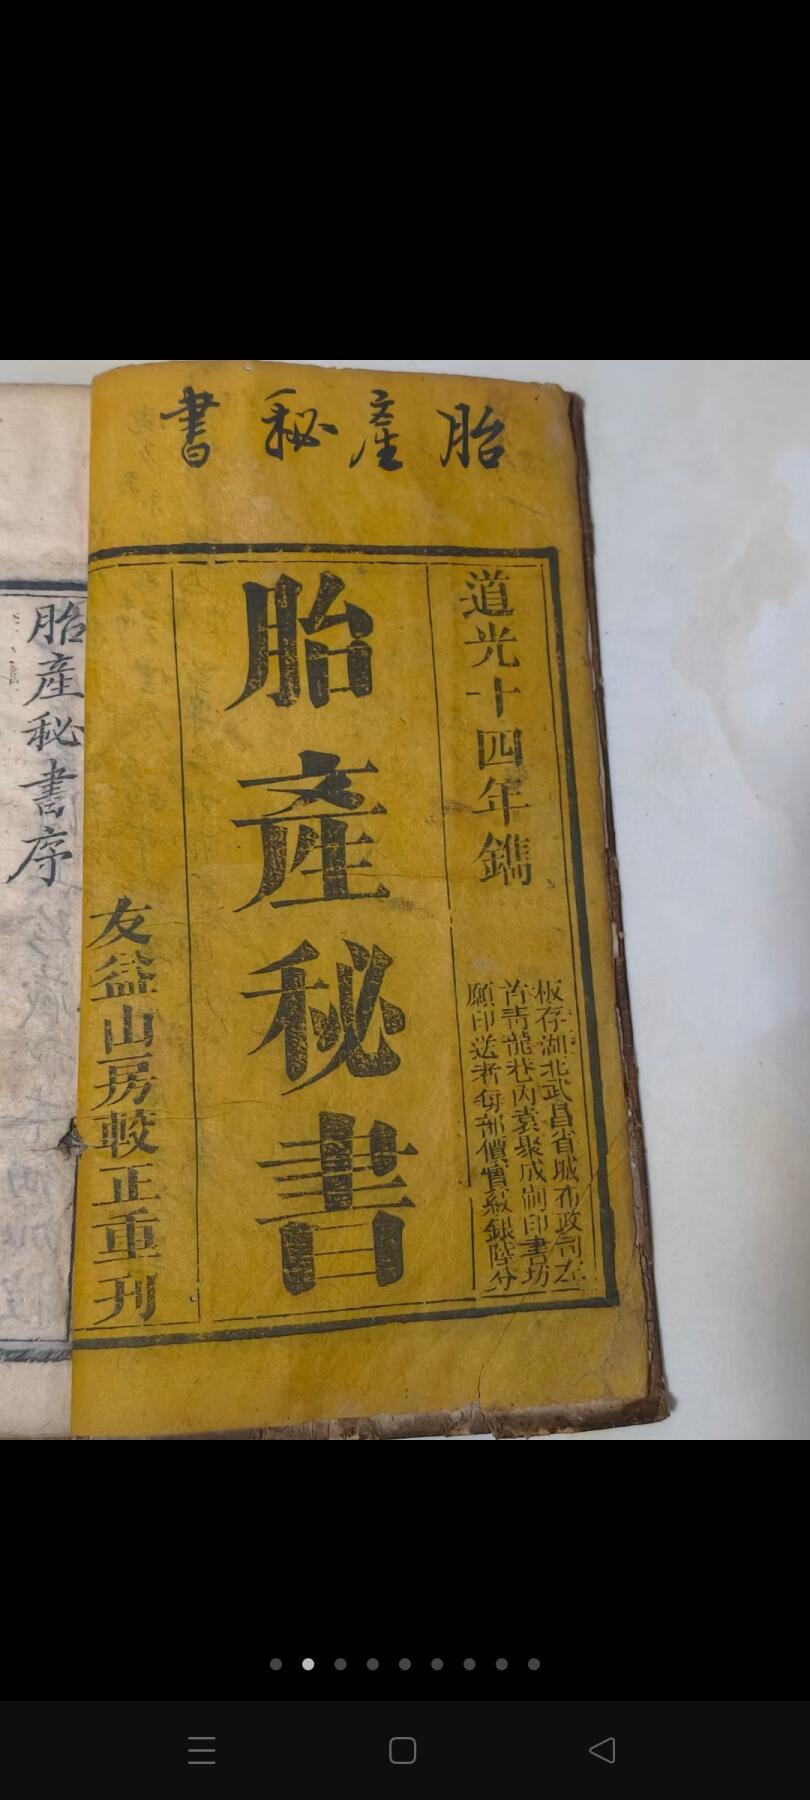 胎產秘書
道光十四年鐫
板存湖北武昌省城布政司左
首靑龍巷內袁聚成刷印書坊
願印送者每部價實紋銀陸分
胎產秘書
友益山房較正重刋
胎產秘書序